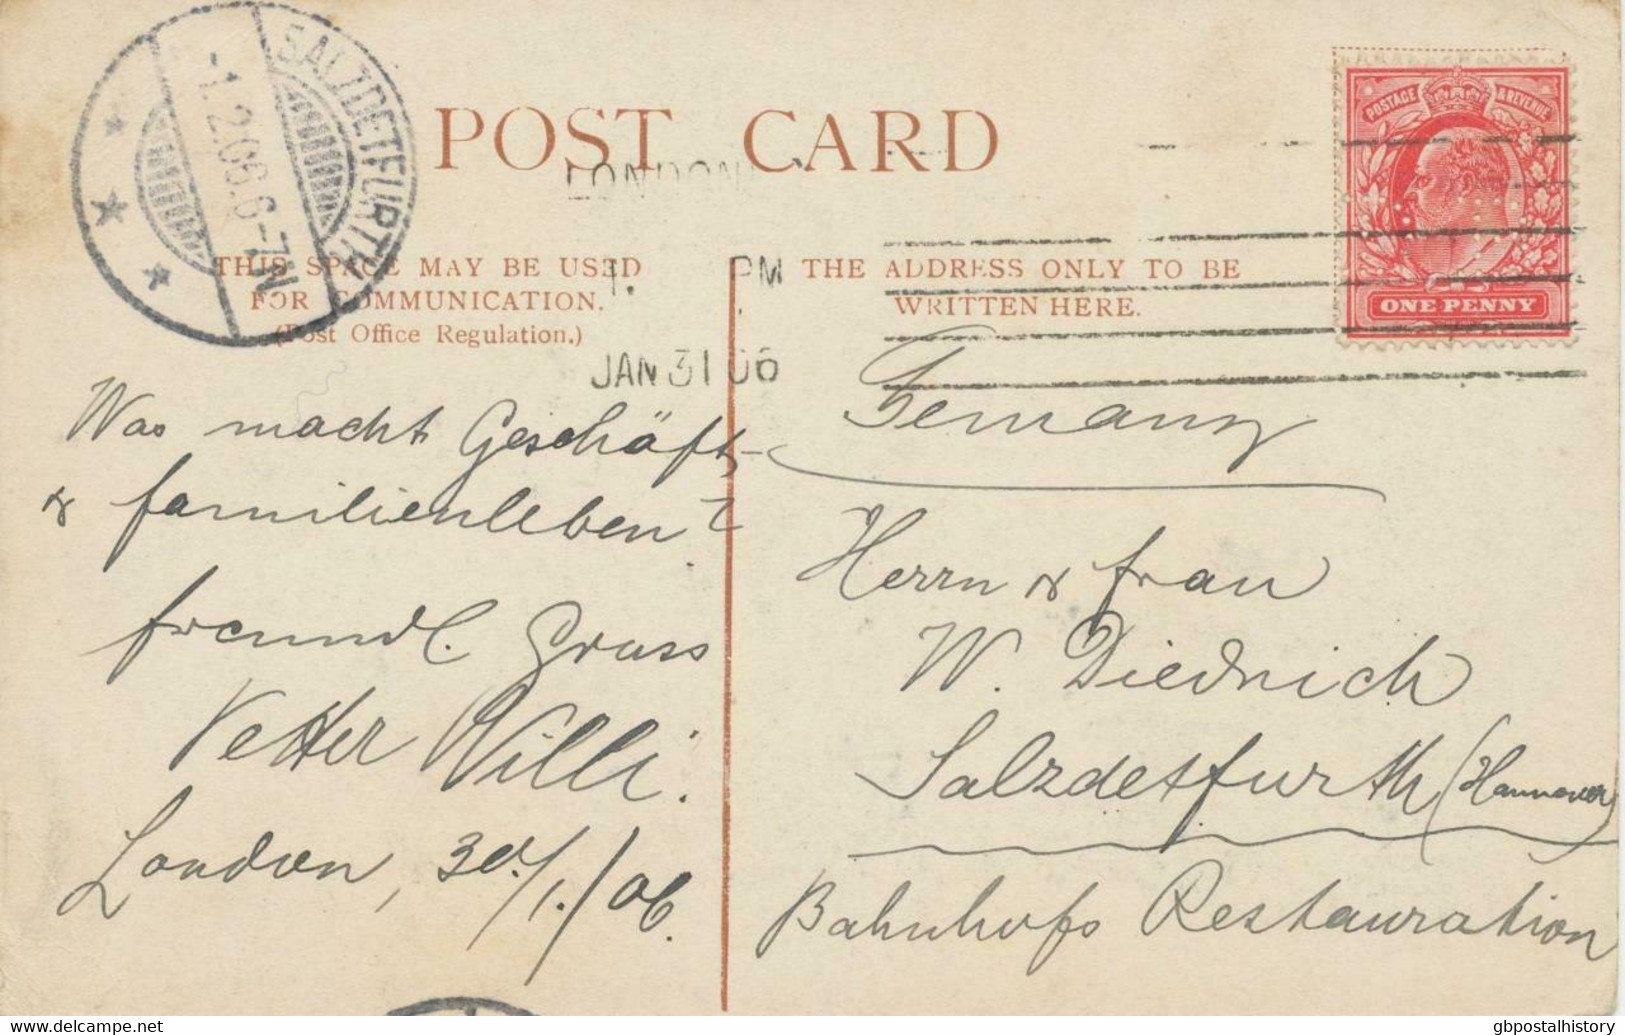 SALZDETFURTH
-1.2.06.6-7N
POST CARD
LONDON
1. PM
JAN 31 06
POSTAGE & REVENUE
ONE PENNY
THIS SPACE MAY BE USED
FOR COMMUNICATION.
(Post Office Regulation.)
THE ADDRESS ONLY TO BE
WRITTEN HERE.
Was macht Geschäfts-
& familienleben?
freundl. Gruss
Vetter Willi.
London, 30./1./06.
Germany
Herrn & Frau
W. Diednich
Salzdetfurth (Hannover)
Bahnhofs Restauration
www.delcampe.net
gbpostalhistory